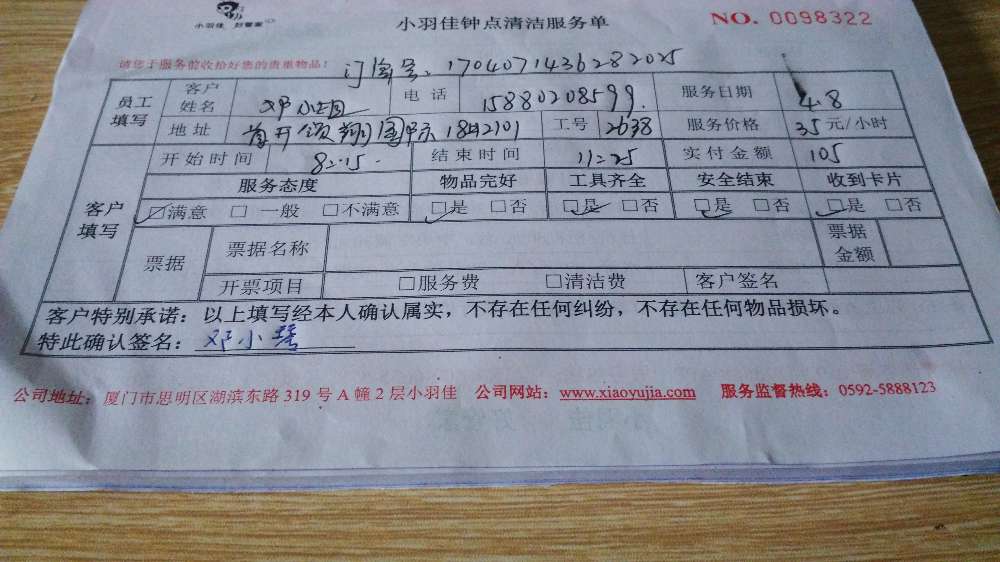 小羽佳 好管家
小羽佳钟点清洁服务单
NO. 0098322
请您于服务前收拾好您的贵重物品!
订单号:1704071436282025
员工填写 客户姓名 邓小姐 电话 15880208599. 服务日期 4.8
地址 首开领翔国际 18#2101 工号 2638 服务价格 35元/小时
客户填写 开始时间 8:15. 结束时间 11:25 实付金额 105
服务态度 物品完好 工具齐全 安全结束 收到卡片
☑满意 □一般 □不满意 ☑是 □否 ☑是 □否 ☑是 □否 ☑是 □否
票据 票据名称 票据金额
开票项目 □服务费 □清洁费 客户签名
客户特别承诺:以上填写经本人确认属实,不存在任何纠纷,不存在任何物品损坏。
特此确认签名: 邓小
公司地址:厦门市思明区湖滨东路 319 号 A 幢 2 层小羽佳 公司网站:www.xiaoyujia.com 服务监督热线:0592-5888123